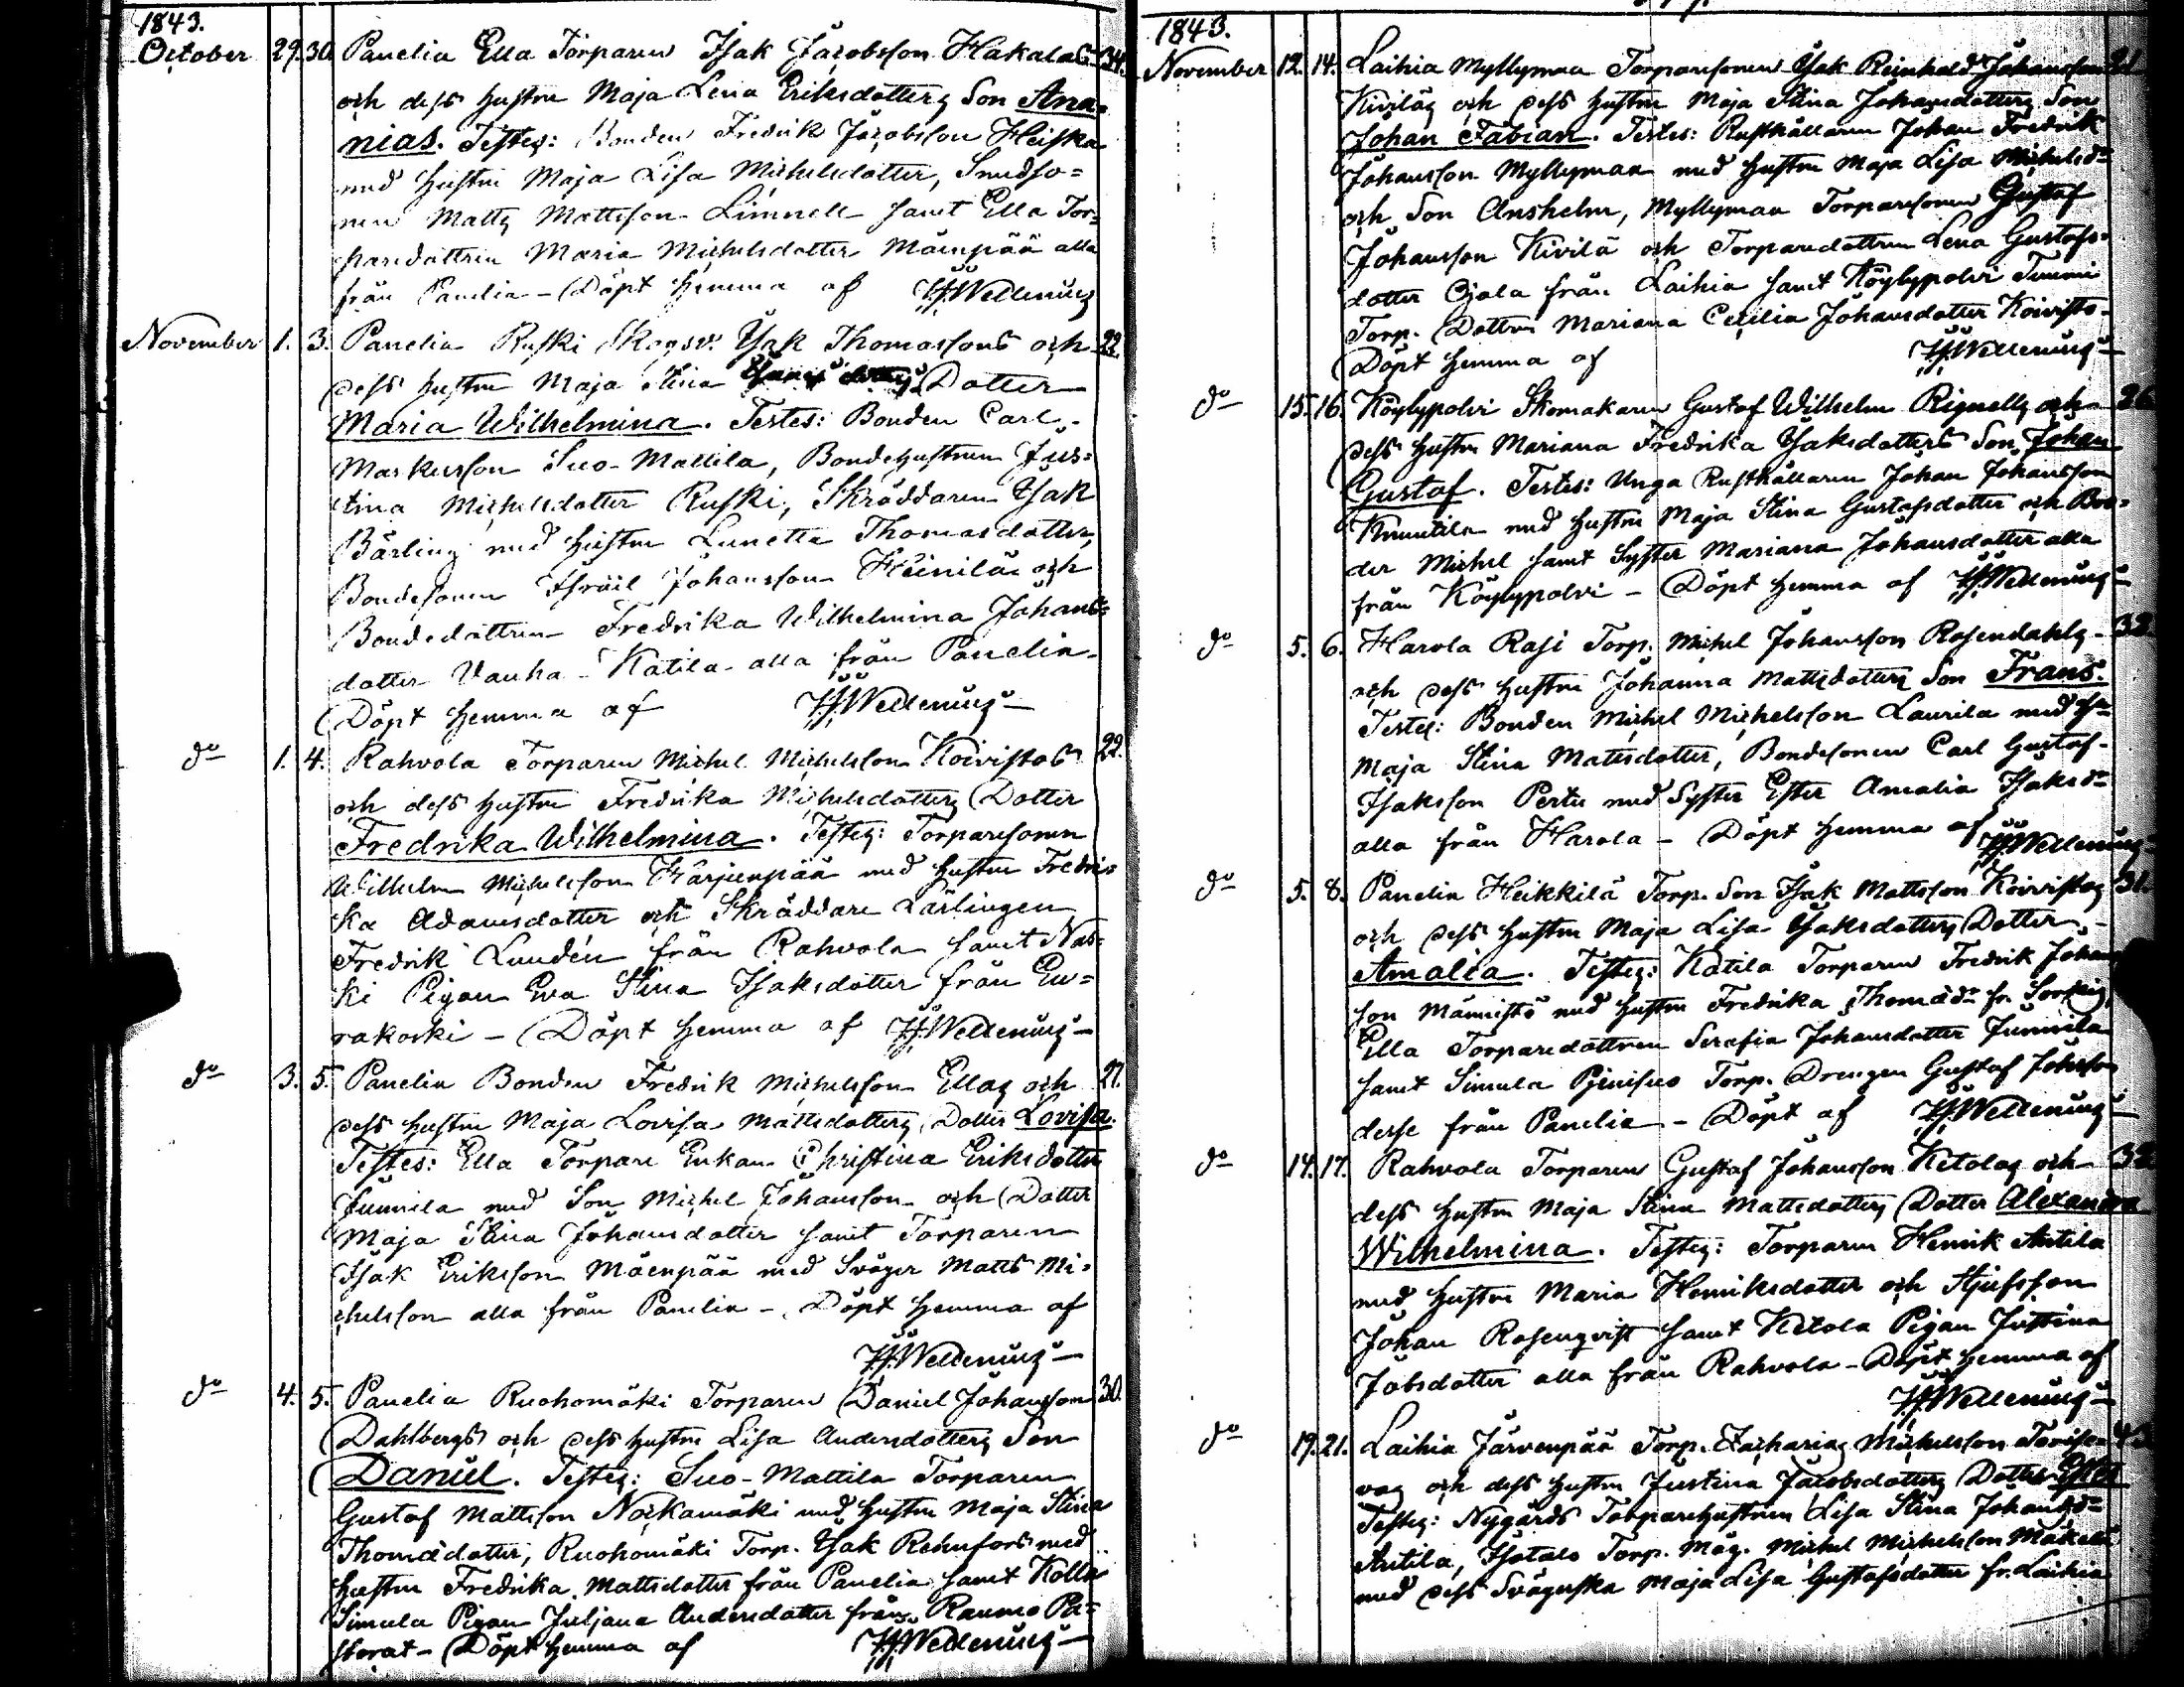 1843.
October 29. 30. Panelia Ella Torparen Isak Jacobsson Hakalas 34.
och dess hustru Maja Lena Eriksdotters Son Ana=
nias. Testes: Bonden Fredrik Jacobsson Heiska
med hustru Maja Lisa Michelsdotter, Smedso=
nen Matts Mattsson Limnell samt Ella Tor=
paredottren Maria Michelsdotter Mäenpää alla
från Panelia - Döpt hemma af
November 1. 3. Panelia Ruski Isak Thomassons och 22.
dess hustru Maja Stina Dotter
Maria Wilhelmina. Testes: Bonden Carl
Markusson Suo-Mattila, Bondehustrun Jus=
tina Michelsdotter Ruski, Skräddaren Isak
Bärling med hustru Lunetta Thomasdotter,
Bondesonen Israil Johansson Heinilä och
Bondedottren Fredrika Wilhelmina Johans=
dotter Vanha-Katila alla från Panelia.
Döpt hemma af
do 1. 4. Rahvola Torparen Michel Michelsson Koivistos 22.
och dess hustru Fredrika Michelsdotters Dotter
Fredrika Wilhelmina. Testes: Torparesonen
Wilhelm Michelsson Härjenpää med hustru Fredri=
ka Adamsdotter och Skräddare Lärlingen
Fredrik Lundén från Rahvola samt Nas=
ki Pigan Eva Stina Isaksdotter från Eu=
rakoski - Döpt hemma af
do 3. 5. Panelia Bonden Fredrik Michelsson Ellas och 27.
dess hustru Maja Lovisa Mattsdotters Dotter Lovisa.
Testes: Ella Torpare Enkan Christina Eriksdotter
Junnila med Son Michel Johansson och Dotter
Maja Stina Johansdotter samt Torparen
Isak Eriksson Mäenpää med Svåger Matts Mi=
chelsson alla från Panelia - Döpt hemma af
do 4. 5. Panelia Ruohomäki Torparen Daniel Johansson 30.
Dahlbergs och dess hustru Lisa Andersdotters Son
Daniel. Testes: Suo-Mattila Torparen
Gustaf Mattsson Nockamäki med hustru Maja Stina
Thomædotter, Ruohomäki Torp. Isak Rehnfors med
hustru Fredrika Mattsdotter från Panelia samt Kolla
Simula Pigan Juljana Andersdotter från Raumo Pa=
storat - Döpt hemma af
1843.
November 12. 14. Laihia Myllymaa Torparesonen Isak Reinhold Johansson 21
Kiviläs och dess hustru Maja Stina Johansdotters Son
Johan Fabian. Testes: Rusthållaren Johan Fredrik
Johansson Myllymaa med hustru Maja Lisa Michelsdr
och Son Anshelm, Myllymaa Torparesonen Gustaf
Johansson Kivilä och Torparedottren Lena Gustafs=
dotter Ojala från Laihia samt Köylypolvi Tommi
Torp. Dottren Mariana Cecilia Johansdotter Koivisto -
Döpt hemma af
do 15. 16. Köylypolvi Skomakaren Gustaf Wilhelm Rignells och 26
dess hustru Mariana Fredrika Isaksdotters Son Johan
Gustaf. Testes: Unga Rusthållaren Johan Johansson
Knuutila med hustru Maja Stina Gustafsdotter och Bro=
der Michel samt Syster Mariana Johansdotter alla
från Köylypolvi - Döpt hemma af
do 5. 6. Harola Rasi Torp. Michel Johansson Rosendahls 32.
och dess hustru Johanna Mattsdotters Son Frans.
Testes: Bonden Michel Michelsson Laurila med hu
Maja Stina Mattsdotter, Bondesonen Carl Gustaf
Isaksson Pertu med Syster Ester Amalia Isaksdr
alla från Harola - Döpt hemma af
do 5. 8. Panelia Heikkilä Torp. Son Isak Mattsson Koivistos 31.
och dess hustru Maja Lisa Isaksdotters Dotter
Amalia. Testes: Katila Torparen Fredrik Johans
son Männistö med hustru Fredrika Thomædr fr.
Ella Torparedottren Serafia Johansdotter Junnila
samt Simula Torp. Drengen Gustaf
desse från Panelia - Döpt af
do 14. 17. Rahvola Torparen Gustaf Johansson Ketolas och 32
dess hustru Maja Stina Mattsdotters Dotter Alexandra
Wilhelmina. Testes: Torparen Henrik Antila
med hustru Maria Henriksdotter och Stjufsson
Johan Rosenqvist samt Ketola Pigan Justina
Jobsdotter alla från Rahvola - Döpt hemma af
do 19. 21. Laihia Järvenpää Torp. Zacharias Michelsson 43
och dess hustru Justina Jacobsdotters Dotter
Testes: Nygårds Torparehustrun Lisa Stina Johansdr
Antila, Isotalo Torp. Måg. Michel Michelsson Mäkelä
med dess Svägerska Maja Lisa Gustafsdotter fr. Laihia